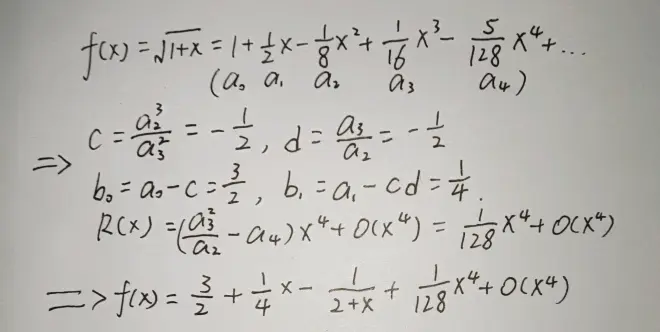 f(x) = √1+x = 1 + 1/2 x - 1/8 x² + 1/16 x³ - 5/128 x⁴ + ...
(a₀ a₁ a₂ a₃ a₄)
⇒ c = a₂³/a₃² = - 1/2 , d = a₃/a₂ = - 1/2
b₀ = a₀ - c = 3/2 , b₁ = a₁ - cd = 1/4 .
R(x) = (a₃²/a₂ - a₄) x⁴ + O(x⁴) = 1/128 x⁴ + O(x⁴)
⇒ f(x) = 3/2 + 1/4 x - 1/2+x + 1/128 x⁴ + O(x⁴)